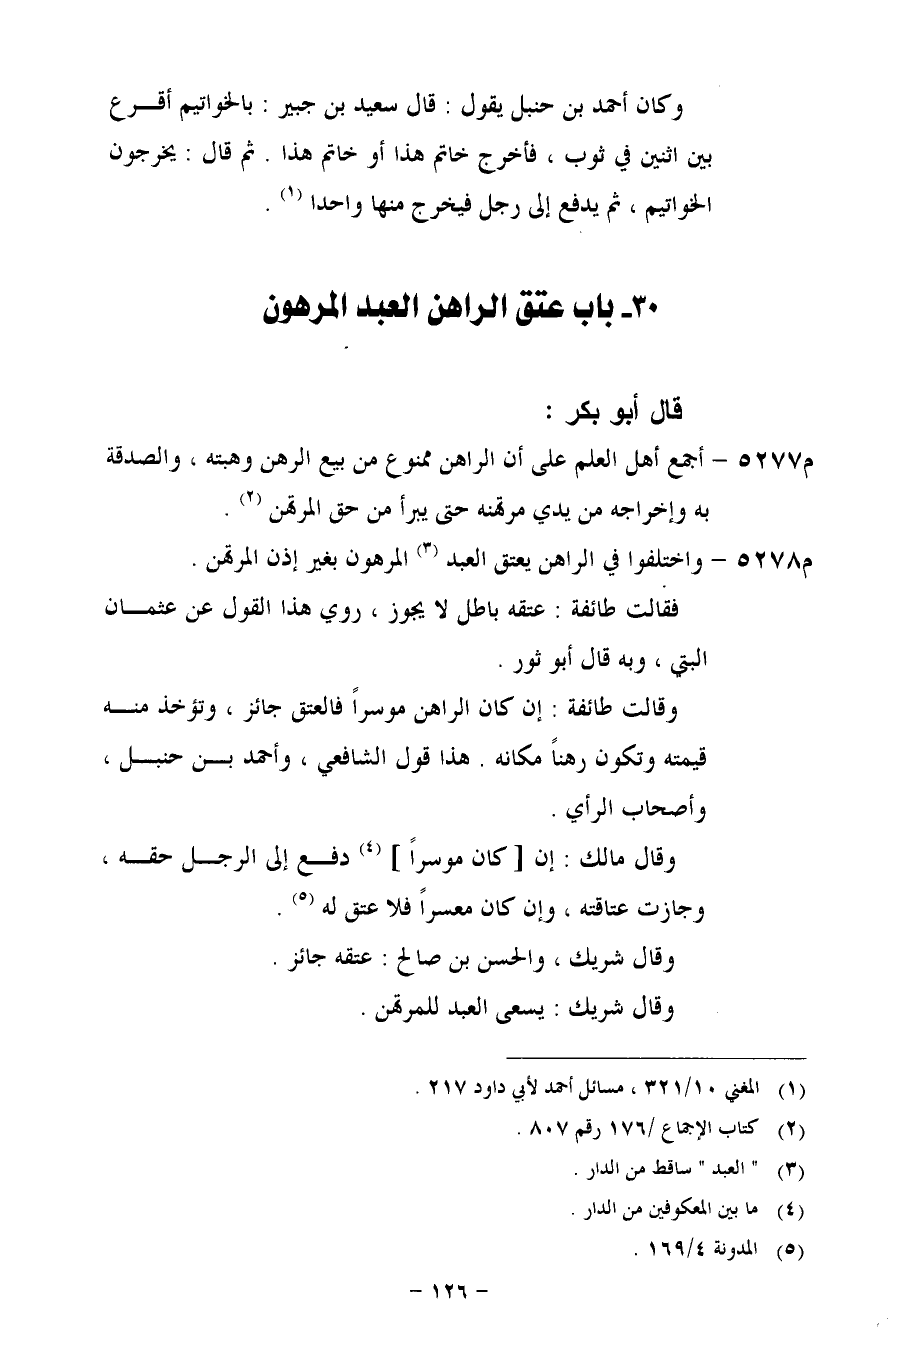 وكان أحمد بن حنبل يقول : قال سعيد بن جبير : بالخواتيم أقــرع
بين اثنين في ثوب ، فأخرج خاتم هذا أو خاتم هذا . ثم قال : يخرجون
الخواتيم ، ثم يدفع إلى رجل فيخرج منها واحدا (١) .
٣٠ـ باب عتق الراهن العبد المرهون
قال أبو بكر :
م٥٢٧٧ – أجمع أهل العلم على أن الراهن ممنوع من بيع الرهن وهبته ، والصدقة
به وإخراجه من يدي مرتهنه حتى يبرأ من حق المرتهن (٢) .
م٥٢٧٨ – واختلفوا في الراهن يعتق العبد (٣) المرهون بغير إذن المرتهن .
فقالت طائفة : عتقه باطل لا يجوز ، روي هذا القول عن عثمــان
البتي ، وبه قال أبو ثور .
وقالت طائفة : إن كان الراهن موسراً فالعتق جائز ، وتؤخذ منــه
قيمته وتكون رهناً مكانه . هذا قول الشافعي ، وأحمد بــن حنبــل ،
وأصحاب الرأي .
وقال مالك : إن [ كان موسراً ] (٤) دفــع إلى الرجــل حقــه ،
وجازت عتاقته ، وإن كان معسراً فلا عتق له (٥) .
وقال شريك ، والحسن بن صالح : عتقه جائز .
وقال شريك : يسعى العبد للمرتهن .
(١) المغني ٣٢١/١٠ ، مسائل أحمد لأبي داود ٢١٧ .
(٢) كتاب الإجماع /١٧٦ رقم ٨٠٧ .
(٣) " العبد " ساقط من الدار .
(٤) ما بين المعكوفين من الدار .
(٥) المدونة ١٦٩/٤ .
– ١٢٦ –